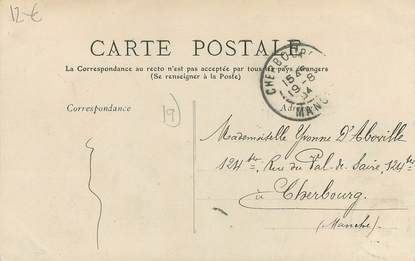 12-€
CARTE POSTALE
La Correspondance au recto n'est pas acceptée par tous les pays étrangers
(Se renseigner à la Poste)
CHERBOURG
15
19-8
04
MANCHE
Correspondance
19
Mademoiselle Yvonne D'Aboville
124 ter, Rue du Val-de-Saire, 124 ter
à Cherbourg.
(Manche)